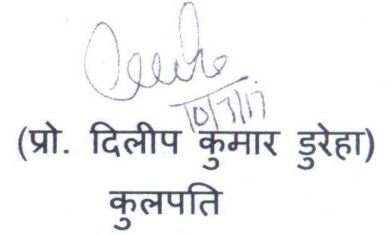 10/7/17
(प्रो. दिलीप कुमार डुरेहा)
कुलपति